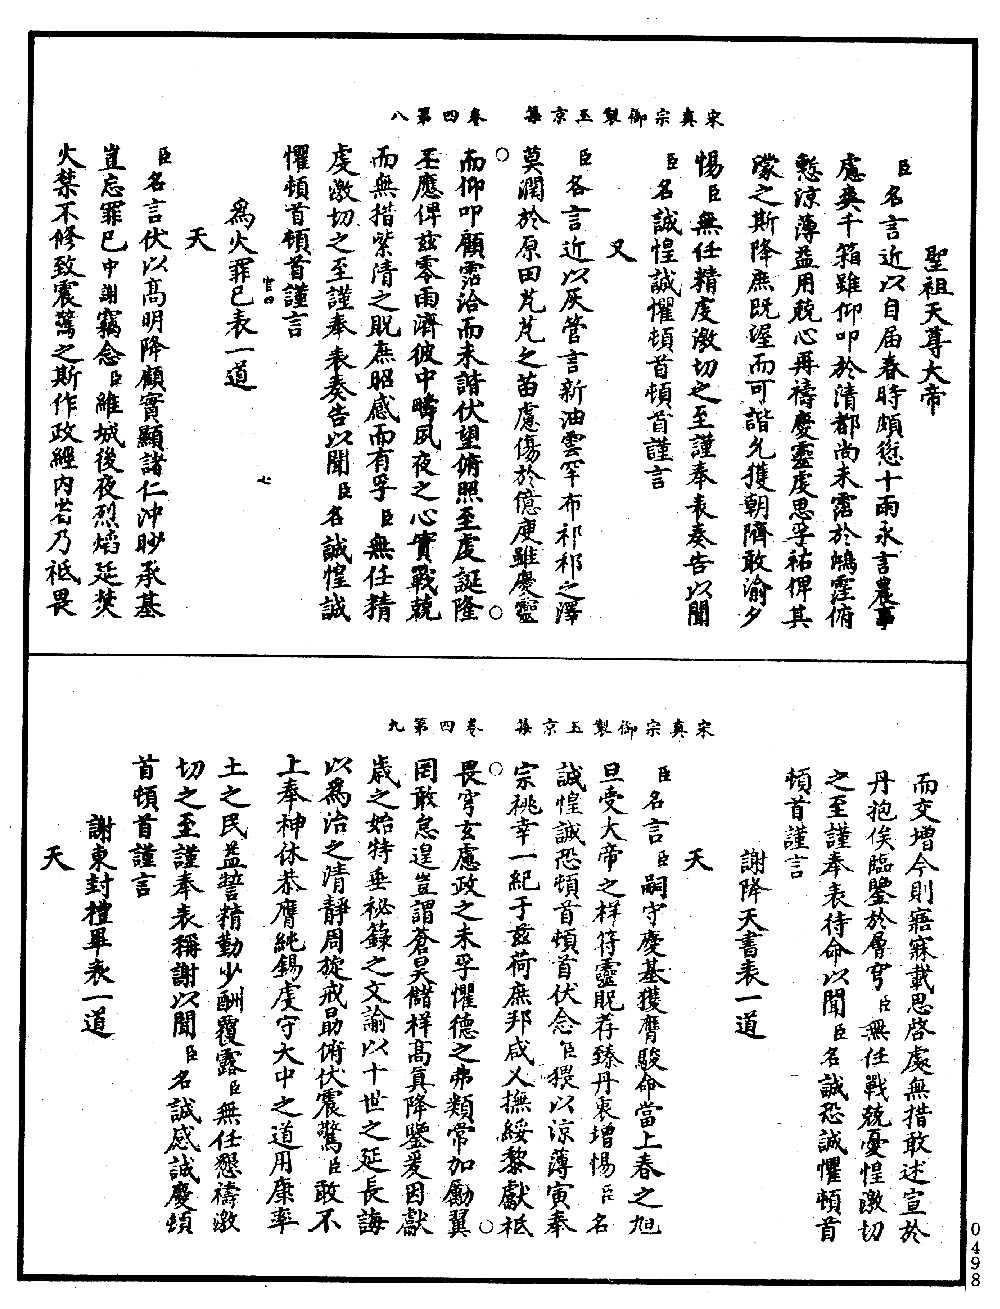 宋真宗御製玉京集　卷四第八
聖祖天尊大帝
臣名言近以自届春時頗愆十雨永言農事
慮爽千箱雖仰叩於清都尚未霑於鴻霔俯
慙涼薄益用兢心再禱慶靈虔思孚祐俾其
濛之斯降庶既渥而可諧允獲朝隮敢渝夕
惕臣無任精虔激切之至謹奉表奏告以聞
臣名誠惶誠懼頓首頓首謹言
又
臣名言近以灰管言新油雲罕布祁祁之澤
莫潤於原田芃芃之苗慮傷於億庾雖慶靈
而仰叩顧霑洽而未諧伏望俯照至虔誕隆
丕應俾茲零雨濟彼中疇夙夜之心實戰兢
而無措紫清之貺庶昭感而有孚臣無任精
虔激切之至謹奉表奏告以聞臣名誠惶誠
懼頓首頓首謹言
官四　七
為火罪己表一道
天
臣名言伏以高明降顧實顯諸仁沖眇承基
豈忘罪己中謝竊念臣維城後夜烈焰延熒
火禁不修致震驚之斯作政經內省乃祗畏
宋真宗御製玉京集　卷四第九
而交增今則寤寐載思啓處無措敢述宣於
丹抱俟臨鑒於層穹臣無任戰兢憂惶激切
之至謹奉表待命以聞臣名誠恐誠懼頓首
頓首謹言
謝降天書表一道
天
臣名言臣嗣守慶基獲膺駿命當上春之旭
旦受大帝之祥符靈貺荐臻丹衷增惕臣名
誠惶誠恐頓首頓首伏念臣猥以涼薄寅奉
宗祧幸一紀于茲荷庶邦咸乂撫綏黎獻祗
畏穹玄慮政之未孚懼德之弗類常加勵翼
罔敢怠遑豈謂蒼昊儲祥高真降鑒爰因獻
歲之始特垂祕籙之文諭以十世之延長誨
以為治之清靜周旋戒勗俯伏震驚臣敢不
上奉神休恭膺純錫虔守大中之道用康率
土之民益誓精勤少酬覆露臣無任懇禱激
切之至謹奉表稱謝以聞臣名誠感誠慶頓
首頓首謹言
謝東封禮畢表一道
天
0498